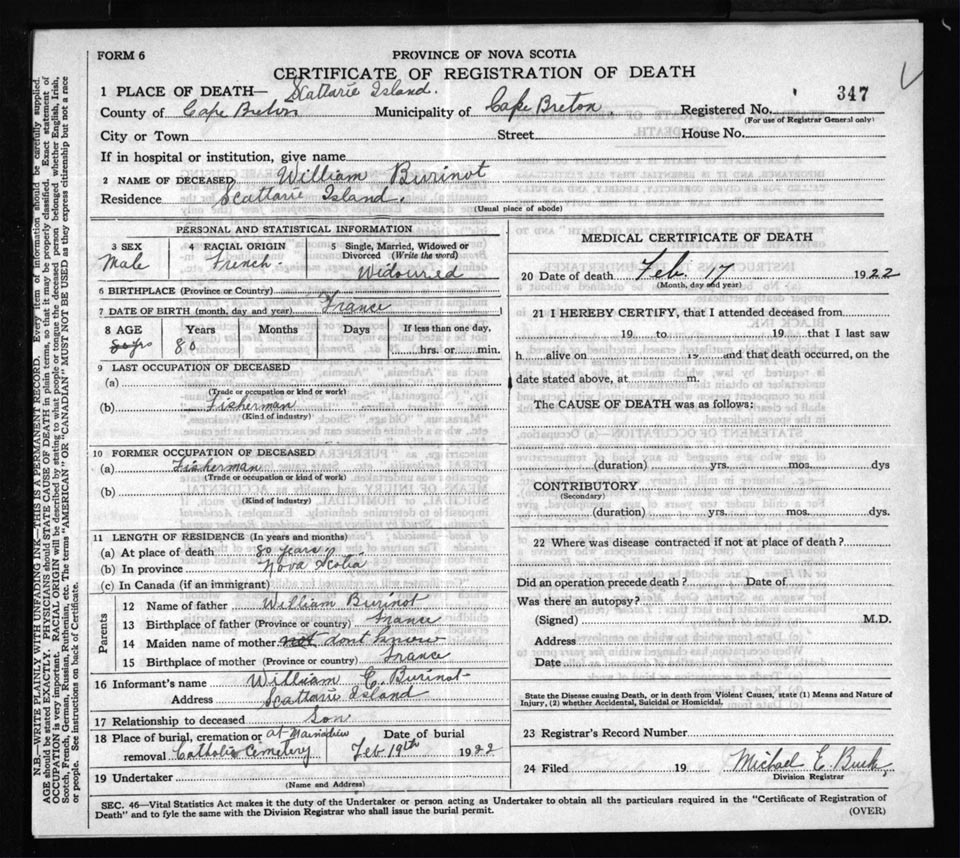 FORM 6
PROVINCE OF NOVA SCOTIA
CERTIFICATE OF REGISTRATION OF DEATH
1 PLACE OF DEATH— Scattarie Island.
County of Cape Breton Municipality of Cape Breton Registered No. 347
(For use of Registrar General only)
City or Town Street House No.
If in hospital or institution, give name
2 NAME OF DECEASED William Burinot
Residence Scattarie Island.
(Usual place of abode)
PERSONAL AND STATISTICAL INFORMATION
3 SEX 4 RACIAL ORIGIN 5 Single, Married, Widowed or Divorced (Write the word)
Male French Widoured
6 BIRTHPLACE (Province or Country) France
7 DATE OF BIRTH (month, day and year)
8 AGE Years Months Days If less than one day,
80 yrs 80 hrs. or min.
9 LAST OCCUPATION OF DECEASED
(a)
(Trade or occupation or kind or work)
(b) Fisherman
(Kind of industry)
10 FORMER OCCUPATION OF DECEASED
(a) Fisherman
(Trade or occupation or kind of work)
(b)
(Kind of industry)
11 LENGTH OF RESIDENCE (In years and months)
(a) At place of death 80 years.
(b) In province Nova Scotia
(c) In Canada (if an immigrant)
Parents
12 Name of father William Burinot
13 Birthplace of father (Province or country) France
14 Maiden name of mother not dont know
15 Birthplace of mother (Province or country) France
16 Informant's name William C. Burinot
Address Scattarie Island
17 Relationship to deceased Son
18 Place of burial, cremation or removal at Mainadieu Catholic Cemetery
Date of burial Feb 19th 1922
19 Undertaker
(Name and Address)
MEDICAL CERTIFICATE OF DEATH
20 Date of death Feb. 17 1922
(Month, day and year)
21 I HEREBY CERTIFY, that I attended deceased from
19 to 19 that I last saw
h alive on 19 and that death occurred, on the
date stated above, at m.
The CAUSE OF DEATH was as follows:
(duration) yrs. mos. dys
CONTRIBUTORY
(Secondary)
(duration) yrs. mos. dys.
22 Where was disease contracted if not at place of death?
Did an operation precede death? Date of
Was there an autopsy?
(Signed) M.D.
Address
Date
State the Disease causing Death, or in death from Violent Causes, state (1) Means and Nature of
Injury, (2) whether Accidental, Suicidal or Homicidal.
23 Registrar's Record Number
24 Filed 19 Michael E. Burke,
Division Registrar
SEC. 46—Vital Statistics Act makes it the duty of the Undertaker or person acting as Undertaker to obtain all the particulars required in the "Certificate of Registration of
Death" and to fyle the same with the Division Registrar who shall issue the burial permit.
(OVER)
N.B.—WRITE PLAINLY WITH UNFADING INK—THIS IS A PERMANENT RECORD. Every item of information should be carefully supplied.
AGE should be stated EXACTLY. PHYSICIANS should STATE CAUSE OF DEATH in plain terms, so that it may be properly classified. Exact statement of
OCCUPATION is very important. RACIAL ORIGIN will be described by stating to what people or tongue the deceased person belonged, whether English, Irish,
Scotch, French, German, Russian, Ruthenian, etc. The terms "AMERICAN" OR "CANADIAN" MUST NOT BE USED as they express citizenship but not a race
or people. See instructions on back of Certificate.